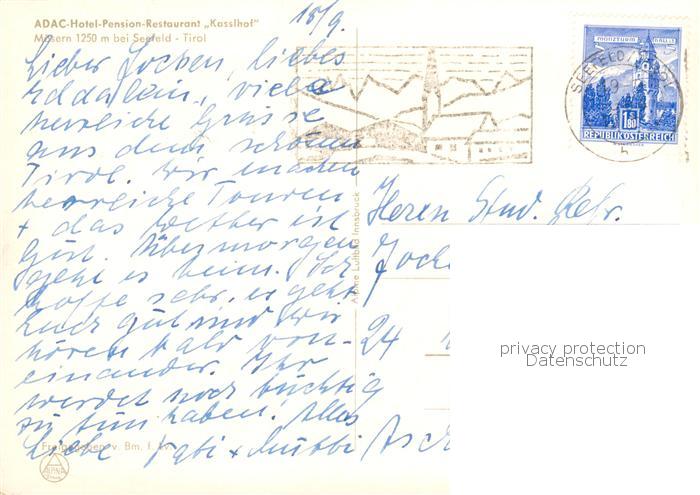 ADAC-Hotel-Pension-Restaurant „Kasslhof"
Mösern 1250 m bei Seefeld - Tirol
18/9.
Lieber Jochen, liebes
viele
herrliche Grüsse
aus dem schönen
Tirol. Wir machen
herrliche Touren
+ das Wetter ist
gut. Übermorgen
geht es heim. Ich
hoffe sehr, es geht
Euch gut und wir
hören bald von-
einander. Ihr
werdet noch tüchtig
zu tun haben. Alles
Liebe + Mutti
Freigegeben v. Bm. f. Lv.
ALPINA
Alpine Luftbild Innsbruck
MÜNZTURM HALL I. T.
1.80
REPUBLIK ÖSTERREICH
SEEFELD
Herrn Stud. Refr.
Joche
24
Asch
privacy protection
Datenschutz